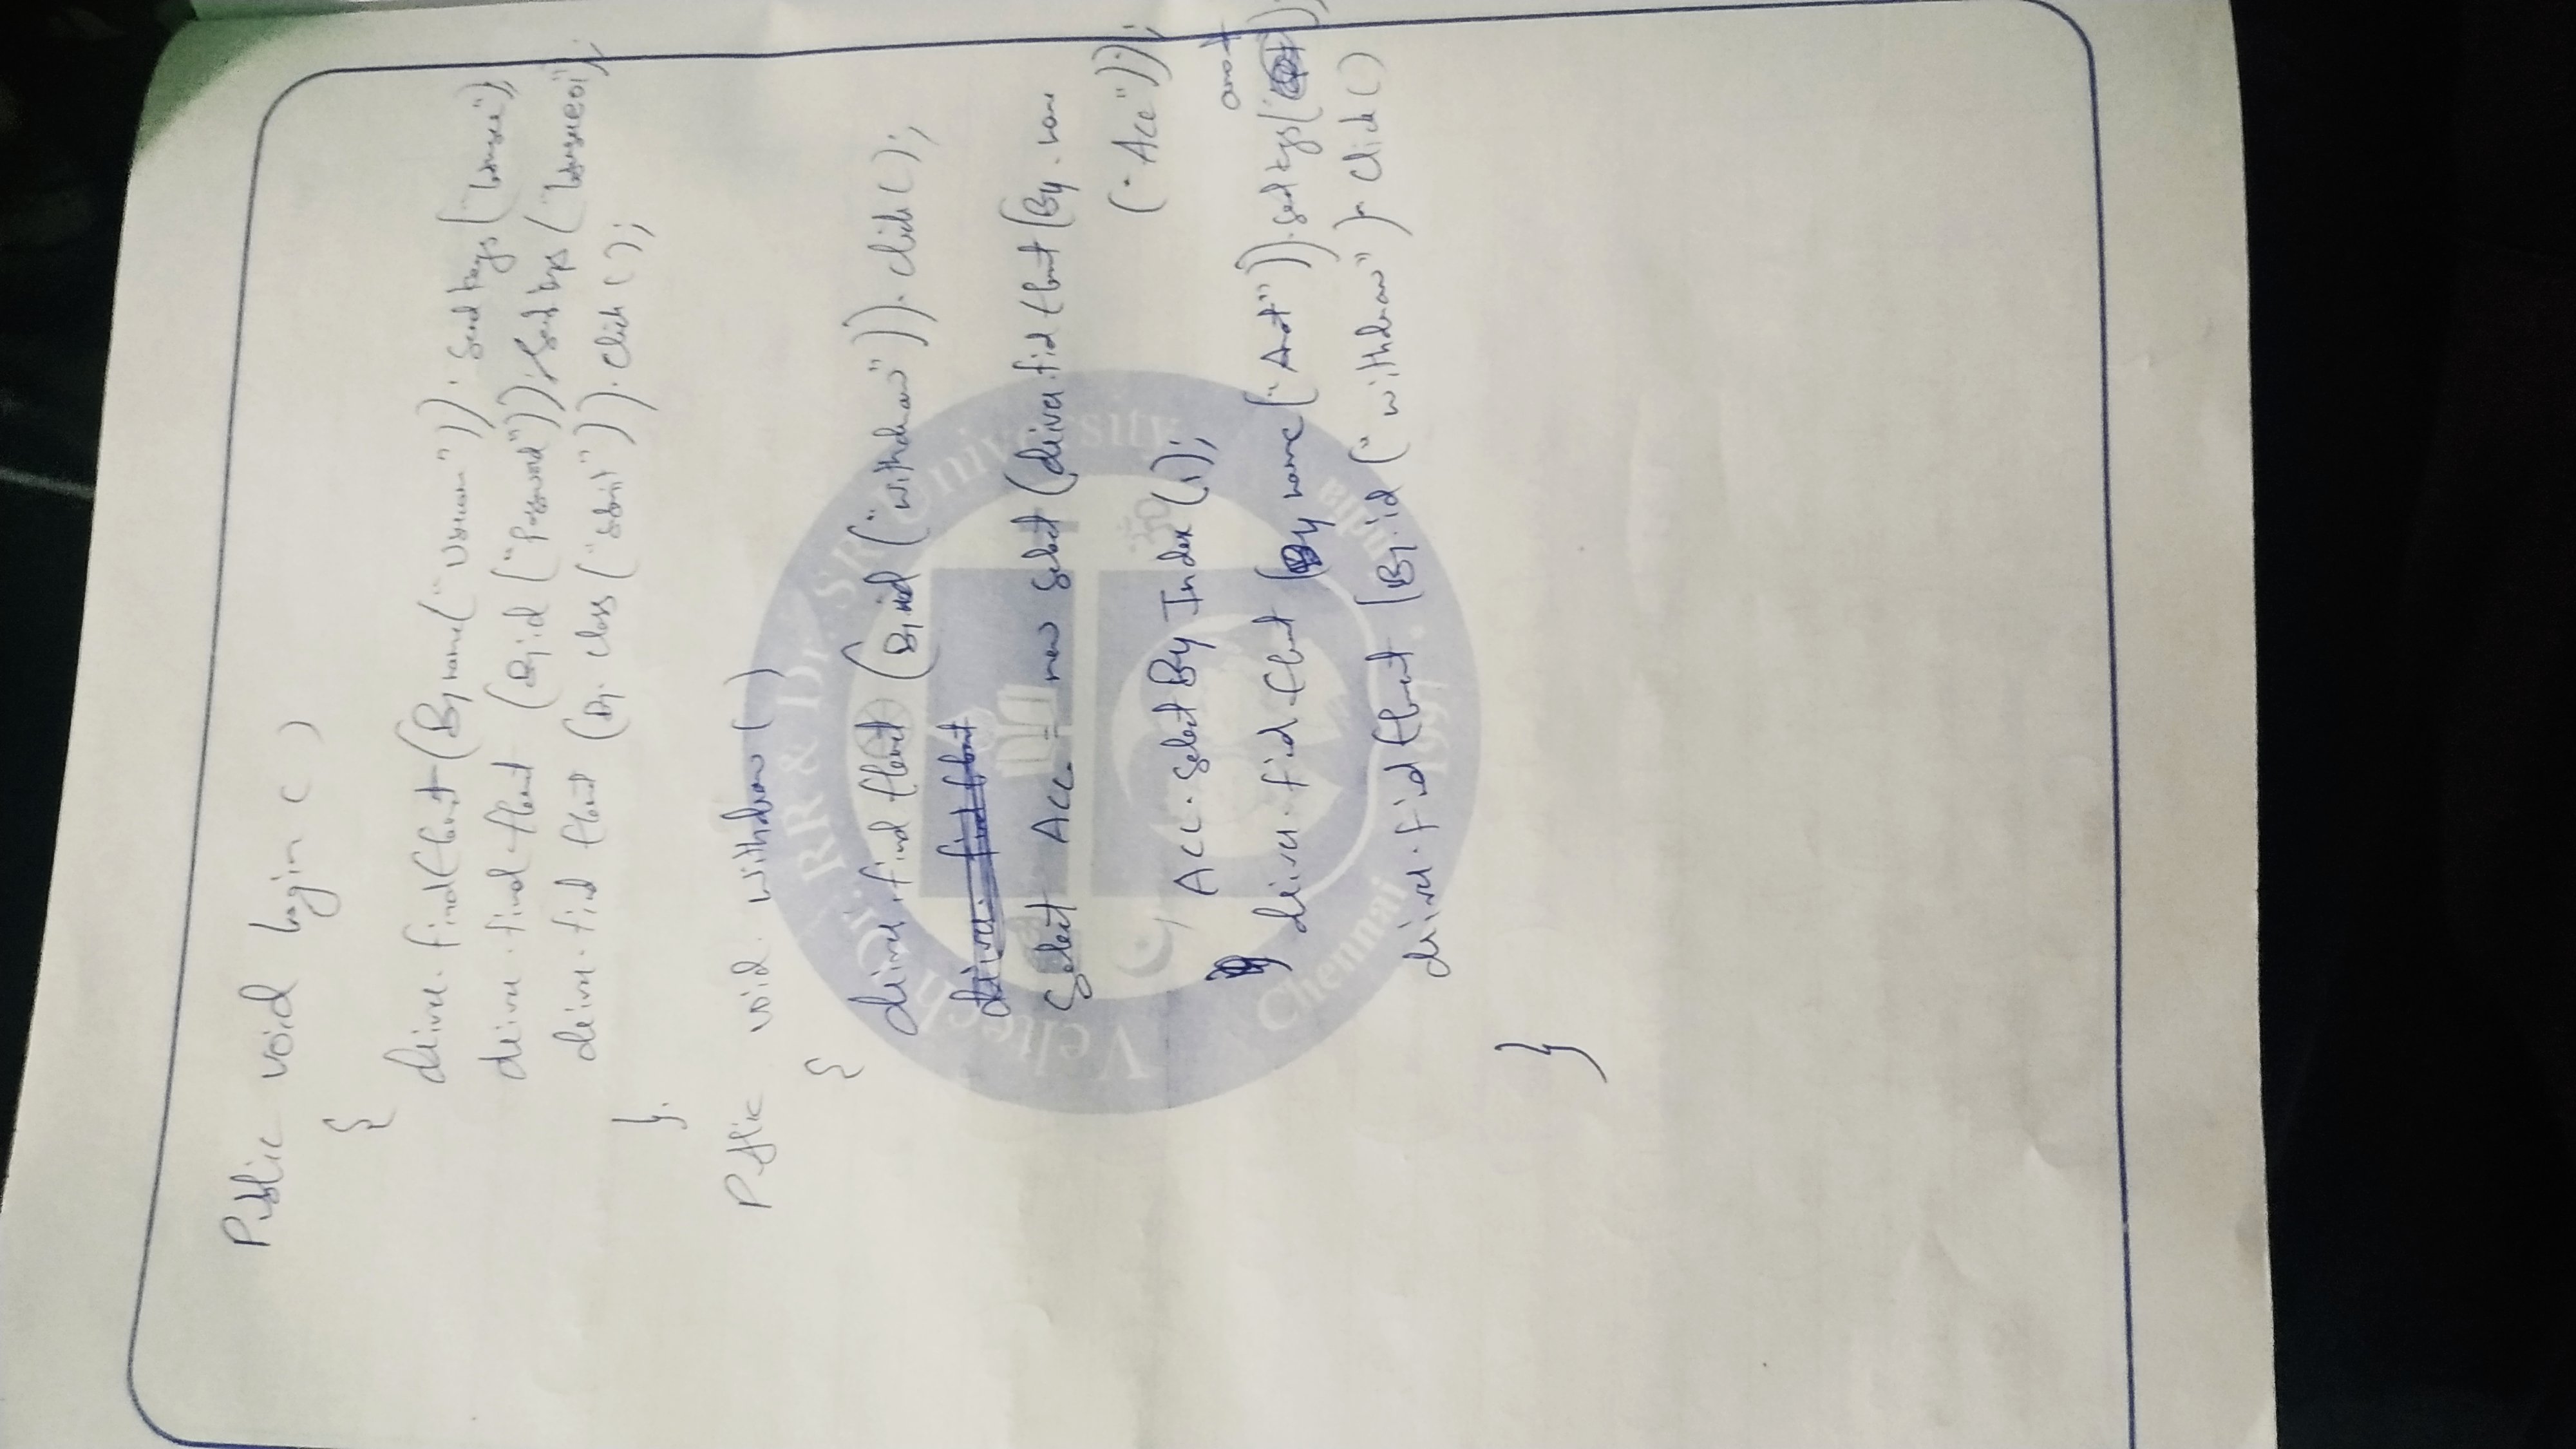 Public void login ( )
{
driver. findElement (By name ("Username")). Send keys (
driver. find Element (By id ("Password")). Send keys (
driver. find Element (By. Class ("Submit")). Click ( );
}.
Public void. withdraw ( )
{
driver. find Element (By id ("withdraw")). click ( );
driver. find Element
Select Acc = new Select (driver. find Element (By. name
("Acc"));
Acc. Select By Index (1);
amont
driver. find. Element (By name ("Amt")). Send keys (
driver. find Element (By. id ("withdraw"). Click ( )
}
Veltech Dr. RR & Dr. SR University
Chennai
India
1997